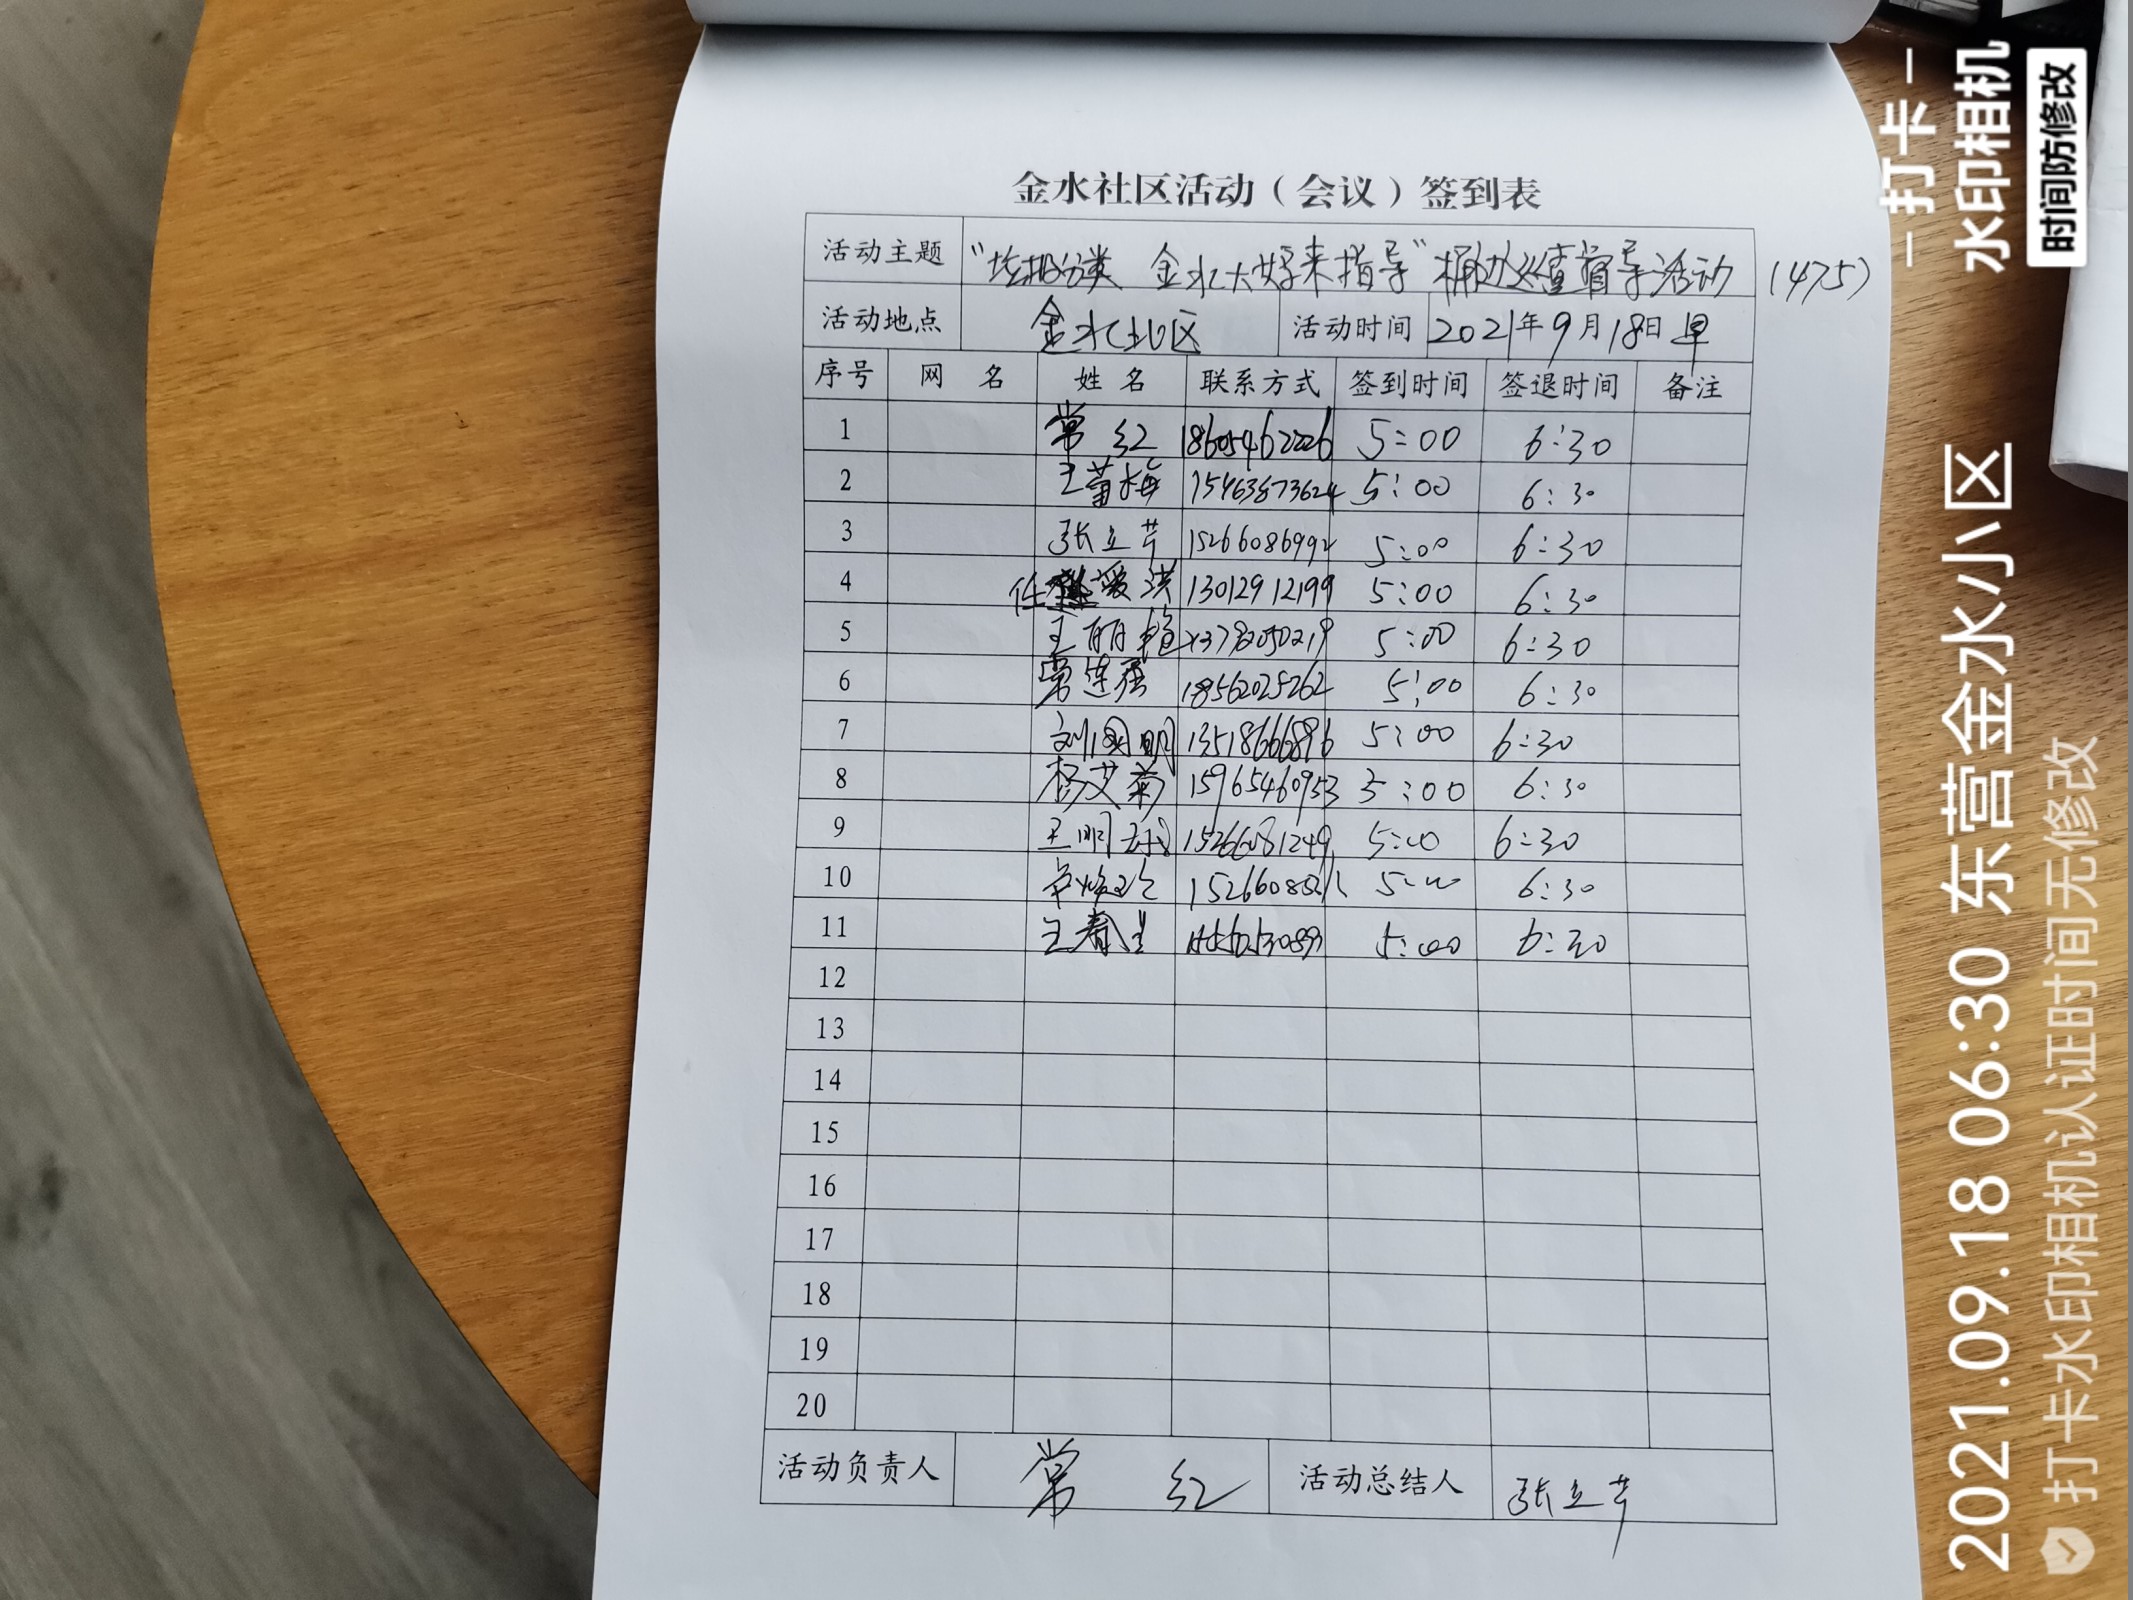 金水社区活动（会议）签到表
活动主题 “垃圾分类 金水大嫂来指导”桶边巡查督导活动 (475)
活动地点 金水社区 活动时间 2021年9月18日早
序号 网 名 姓 名 联系方式 签到时间 签退时间 备注
1 常 红 18605462226 5:00 6:30
2 王 梅 15463873624 5:00 6:30
3 张立芹 15266086992 5:00 6:30
4 任爱洪 13012912199 5:00 6:30
5 王丽艳 5:00 6:30
6 常莲香 18562025262 5:00 6:30
7 刘国明 13518666896 5:00 6:30
8 杨艾菊 15965460953 5:00 6:30
9 王明 15266081249 5:00 6:30
10 5:00 6:30
11 王春 5:00 6:30
12
13
14
15
16
17
18
19
20
活动负责人 常 红 活动总结人 张立芹
打卡
水印相机
时间防修改
2021.09.18 06:30 东营金水小区
打卡水印相机认证时间无修改